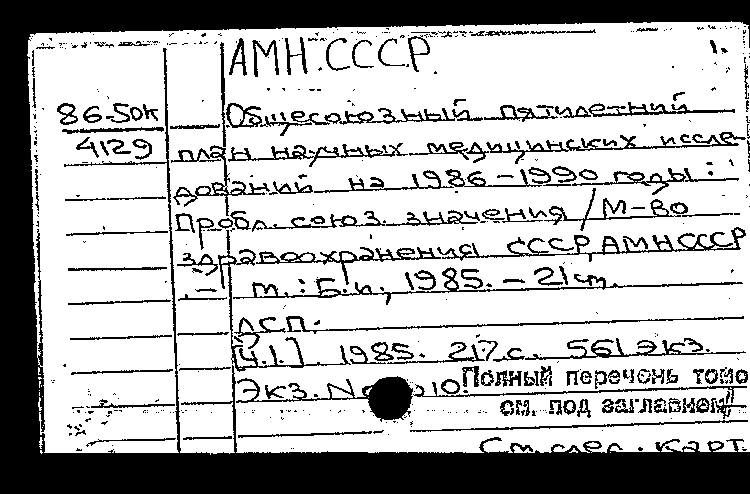 АМН СССР. 1.
86-50к Общесоюзный пятилетний
4129 план научных медицинских иссле-
дований на 1986-1990 годы:
Пробл. союз. значения / М-во
здравоохранения СССР, АМН СССР
.- М.: Б.и., 1985. - 21 см.
ДСП.
[Ч.1.] 1985. 217 с. 561 экз.
Экз. №
Полный перечень томо
см. под заглавием
См. след. карт.